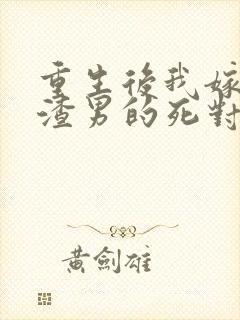 重生後我嫁
渣男的死對
黃劍雄